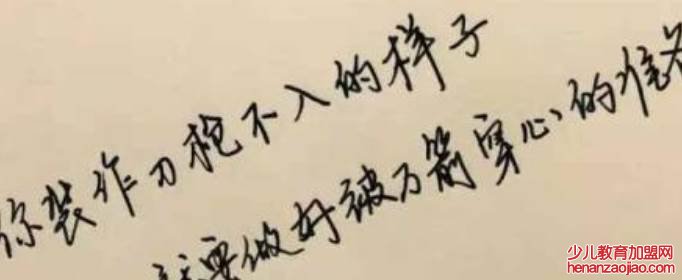 你装作刀枪不入的样子
就要做好被万箭穿心的准备
少儿教育加盟网
henanzaojiao.com